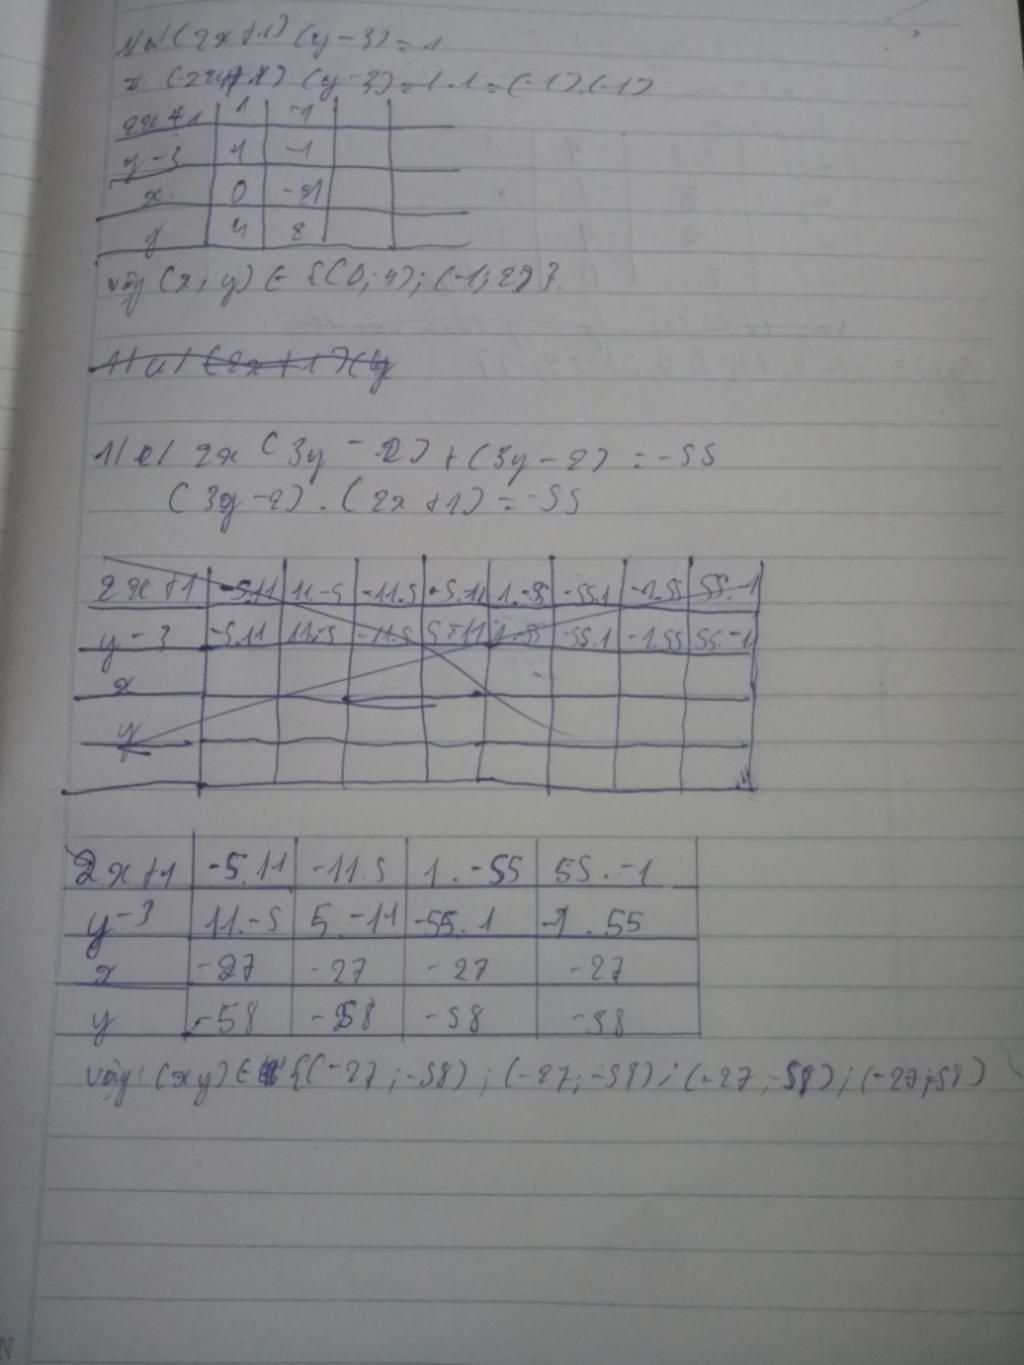 1/ a/ (2x+1) (y-3) = 1
(y-3) = 1.1 = (-1).(-1)
2x+1 1 -1
y-3 1 -1
x 0 -1
y 4 2
vậy (x, y) ∈ {(0; 4); (-1; 2)}.
1/ a/ (2x+1)(y
1/ e/ 2x (3y - 2) + (3y - 2) = -55
(3y - 2) . (2x + 1) = -55
2x+1 -5.11 11.-5 -11.5 5.-11 1.-55 -55.1 -1.55 55.-1
y-3 -5.11 11.-5 -11.5 5.-11 1.-55 -55.1 -1.55 55.-1
x
y
2x+1 -5.11 -11.5 1.-55 55.-1
y-3 11.-5 5.-11 -55.1 -1.55
x -27 -27 -27 -27
y -58 -58 -58 -58
vậy: (x y) ∈ {(-27; -58); (-27; -58); (-27; -58); (-27; -58)